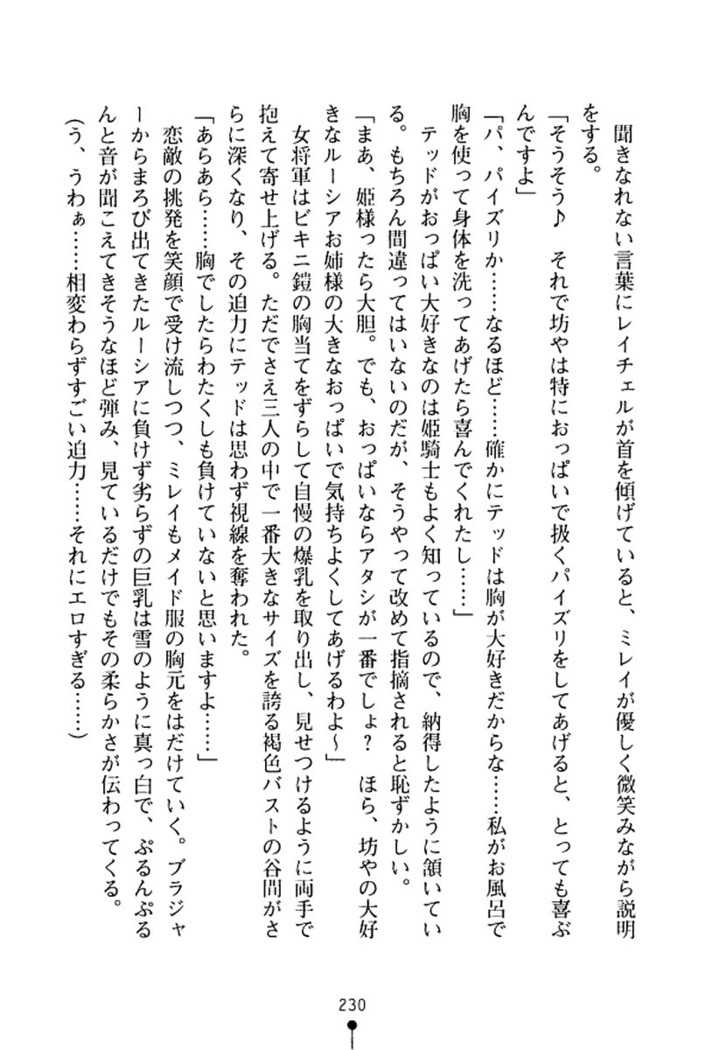 聞きなれない言葉にレイチェルが首を傾げていると、ミレイが優しく微笑みながら説明
をする。
「そうそう♪　それで坊やは特におっぱいで扱くパイズリをしてあげると、とっても喜ぶ
んですよ」
「パ、パイズリか……なるほど……確かにテッドは胸が大好きだからな……私がお風呂で
胸を使って身体を洗ってあげたら喜んでくれたし……」
テッドがおっぱい大好きなのは姫騎士もよく知っているので、納得したように頷いてい
る。もちろん間違ってはいないのだが、そうやって改めて指摘されると恥ずかしい。
「まあ、姫様ったら大胆。でも、おっぱいならアタシが一番でしょ？　ほら、坊やの大好
きなルーシアお姉様の大きなおっぱいで気持ちよくしてあげるわよ～」
女将軍はビキニ鎧の胸当てをずらして自慢の爆乳を取り出し、見せつけるように両手で
抱えて寄せ上げる。ただでさえ三人の中で一番大きなサイズを誇る褐色バストの谷間がさ
らに深くなり、その迫力にテッドは思わず視線を奪われた。
「あらあら……胸でしたらわたくしも負けていないと思いますよ……」
恋敵の挑発を笑顔で受け流しつつ、ミレイもメイド服の胸元をはだけていく。ブラジャ
ーからまろび出てきたルーシアに負けず劣らずの巨乳は雪のように真っ白で、ぷるんぷる
んと音が聞こえてきそうなほど弾み、見ているだけでもその柔らかさが伝わってくる。
（う、うわぁ……相変わらずすごい迫力……それにエロすぎる……）
230